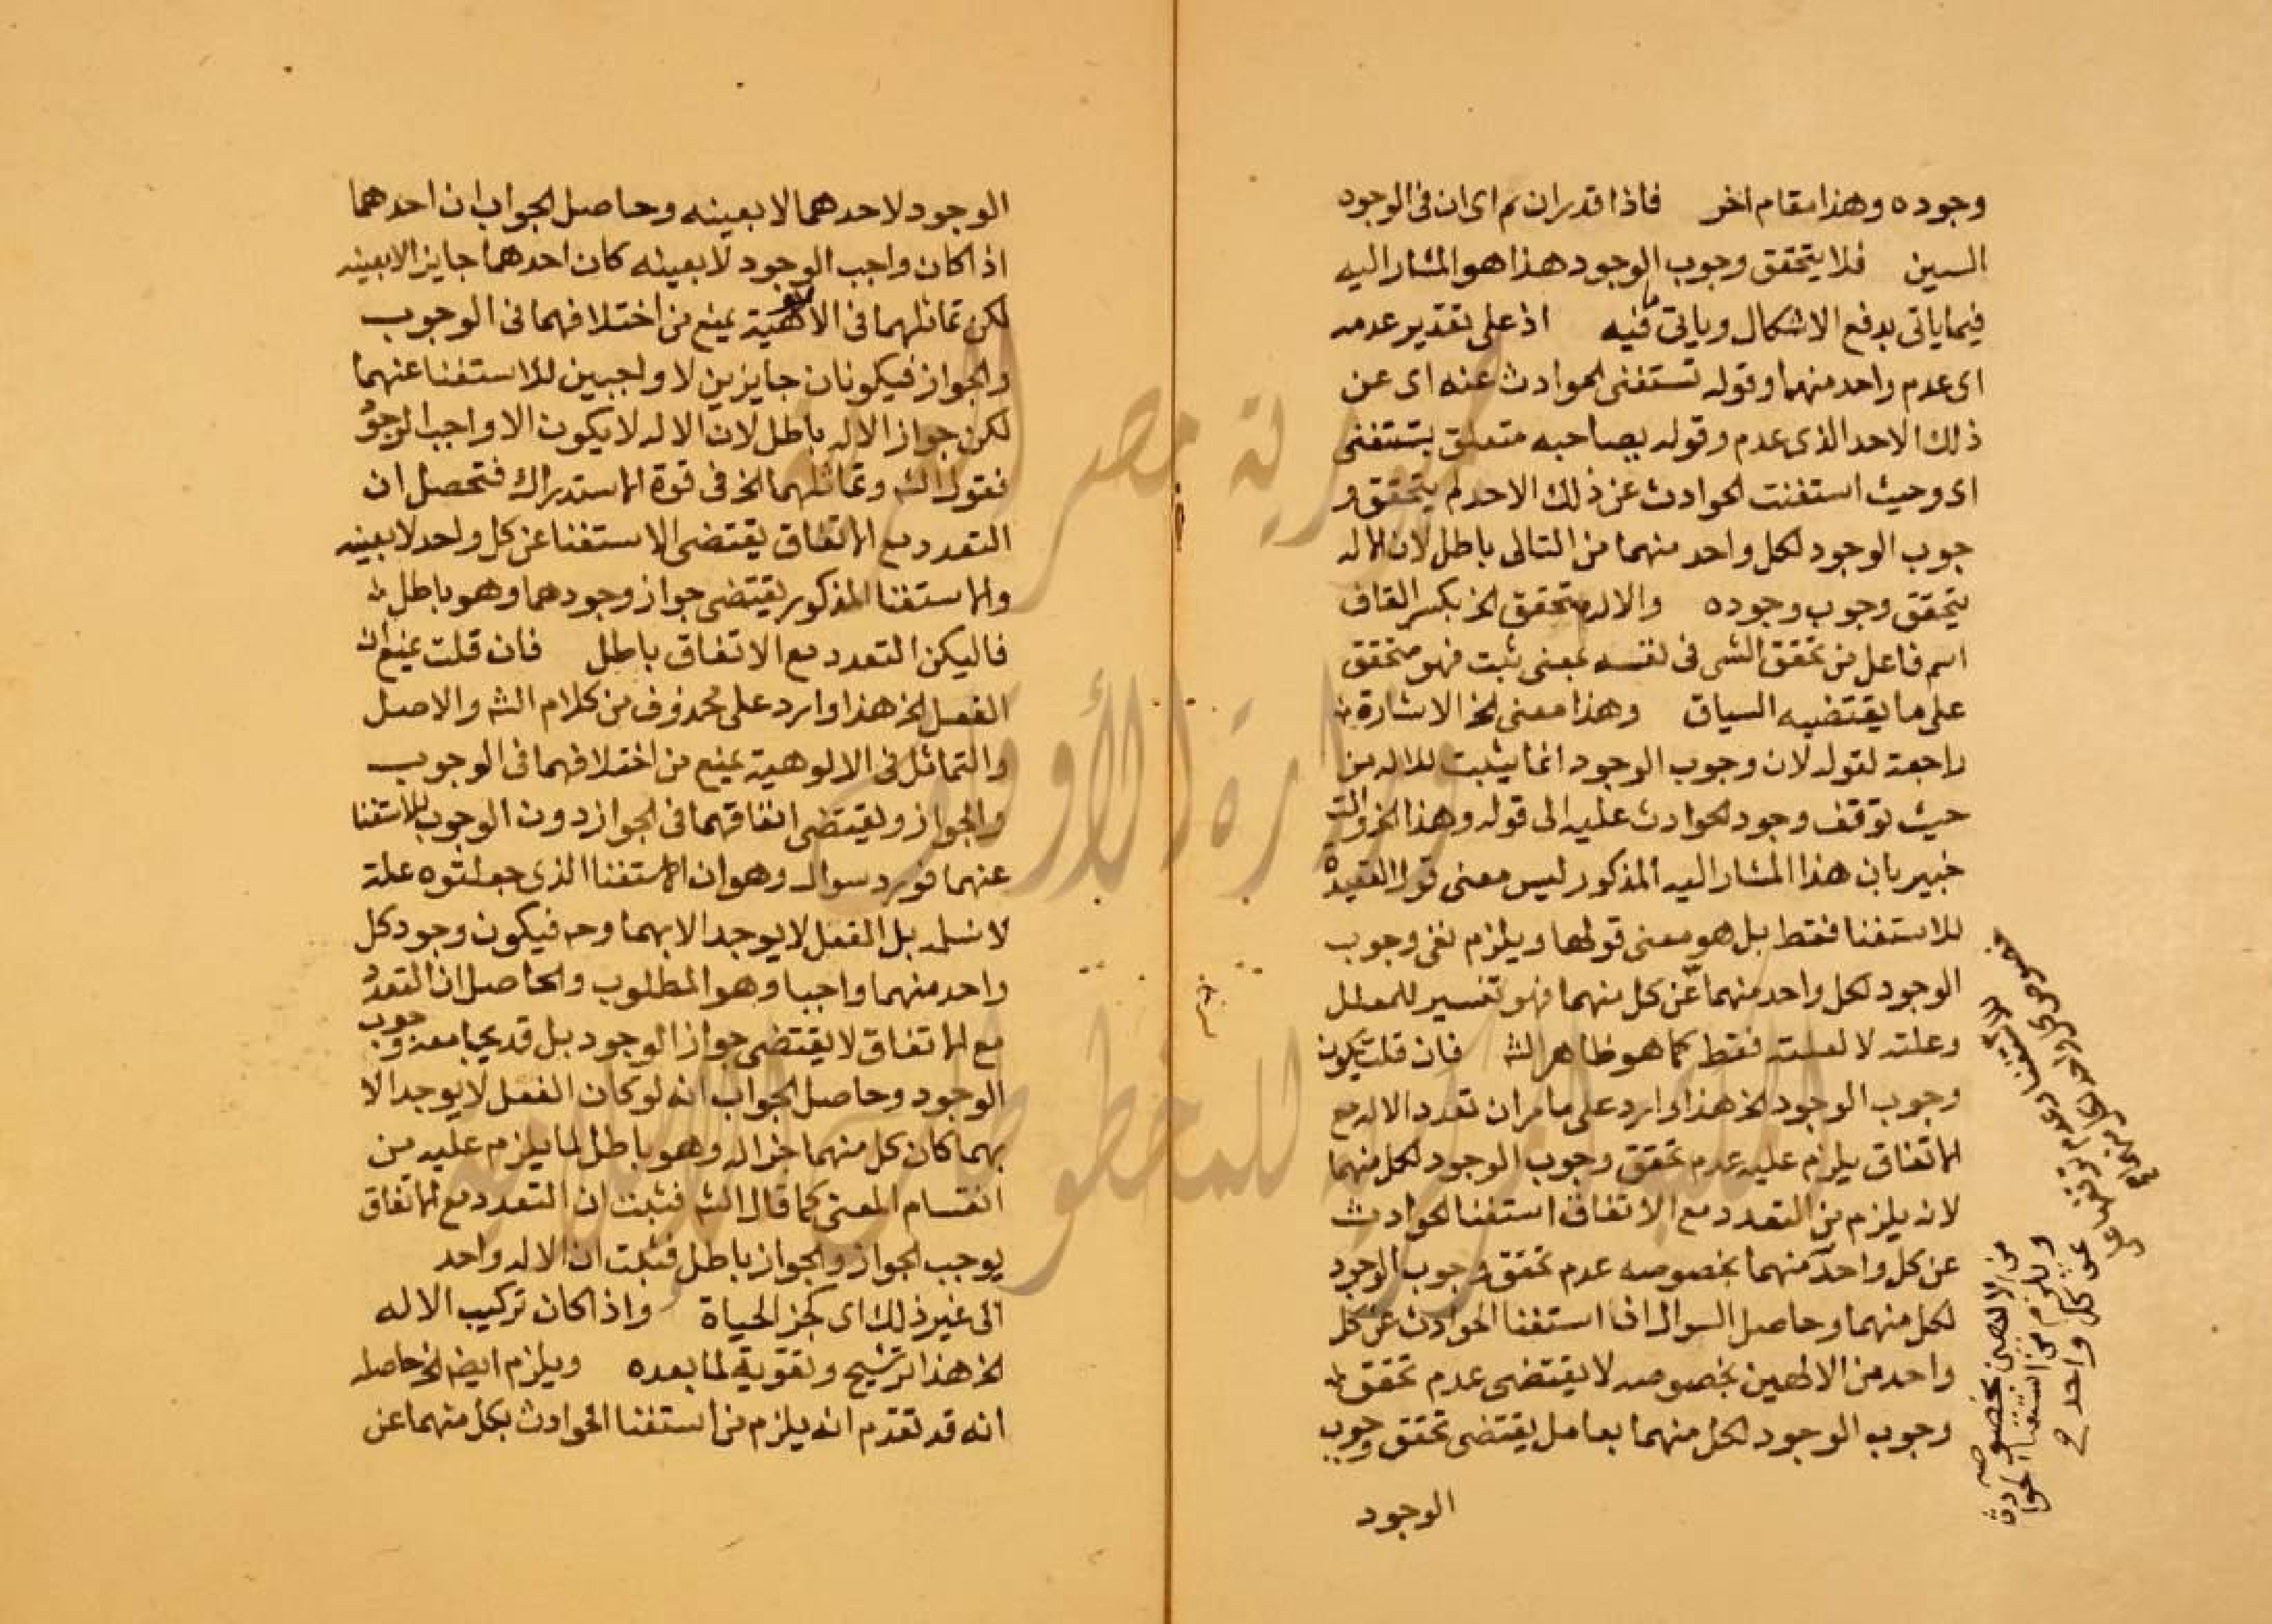 وجوده وهذا مقام اخر فاذا قدر ان ثم اى ان فى الوجود
السين فلا يتحقق وجوب الوجود هذا هو المشار اليه
فيما ياتى بدفع الاشكال وياتى ما فيه اذ على تقدير عدمه
اى عدم واحد منهما وقوله تستغنى الحوادث عنه اى عن
ذلك الاحد الذى عدم وقوله بصاحبه متعلق بتستغنى
اى وحيث استغنت الحوادث عن ذلك الاحد لم يتحقق و
جوب الوجود لكل واحد منهما من التالى باطل لان الاله
يتحقق وجوب وجوده والاله متحقق الخ بكسر القاف
اسم فاعل من تحقق الشى فى نفسه بمعنى ثبت فهو متحقق
على ما يقتضيه السياق وهذا معنى الخ الاشارة
راجعة لقوله لان وجوب الوجود انما يثبت للاله من
حيث توقف وجود الحوادث عليه الى قوله وهذا الخ وانت
خبير بان هذا المشار اليه المذكور ليس معنى قول العقيدة
للاستغنا فقط بل هو معنى قولها ويلزم نفى وجوب
الوجود لكل واحد منهما عن كل منهما فهو تفسير للمعلل
وعلته لا لعلته فقط كما هو ظاهر الشه فان قلت يكون
وجوب الوجود الخ هذا وارد على ما مر ان تعدد الاله مع
الاتفاق يلزم عليه عدم تحقق وجوب الوجود لكل منهما
لانه يلزم من التعدد مع الاتفاق استغنا الحوادث
عن كل واحد منهما بخصوصه عدم تحقق وجوب الوجود
لكل منهما وحاصل السوال ان استغنا الحوادث عن كل
واحد من الالهين بخصوصه لا يقتضى عدم تحقق
وجوب الوجود لكل منهما بعامل يقتضى تحقق وجوب
الوجود
من الالهين بخصوصه
ويلزم من استغنا الحوادث
عن كل واحد
الوجود لاحدهما لا بعينه وحاصل الجواب ان احدهما
اذا كان واجب الوجود لا بعينه كان احدهما جايزا لا بعينه
لكن تماثلهما فى الالوهية يمنع من اختلافهما فى الوجوب
والجواز فيكونان جايزين لا واجبين للاستغنا عنهما
لكن جواز الاله باطل لان الاله لا يكون الا واجب الوجود
فقول الشه وتماثلهما الخ فى قوة الاستدراك فتحصل ان
التعدد مع الاتفاق يقتضى الاستغنا عن كل واحد لا بعينه
والاستغنا المذكور يقتضى جواز وجودهما وهو باطل
فاليكن التعدد مع الاتفاق باطل فان قلت يمنع ان
الفعل الخ هذا وارد على محذوف من كلام الشه والاصل
والتماثل فى الالوهية يمنع من اختلافهما فى الوجوب
والجواز ويقتضى اتفاقهما فى الجواز دون الوجوب للاستغنا
عنهما فورد سوال وهو ان الاستغنا الذى جعلتوه علة
لا نسلمه بل الفعل لا يوجد الا بهما وحه فيكون وجود كل
واحد منهما واجبا وهو المطلوب والحاصل ان التعدد
مع الاتفاق لا يقتضى جواز الوجود بل قد يجامعه وجوب
الوجود وحاصل الجواب انه لو كان الفعل لا يوجد الا
بهما كان كل منهما جزء اله وهو باطل لما يلزم عليه من
انقسام المعنى كما قال الشه فثبت ان التعدد مع الاتفاق
يوجب الجواز والجواز باطل فثبت ان الاله واحد
الى غير ذلك اى كجز الحياة واذا كان تركيب الاله
الخ هذا ترشيح وتقوية لما بعده ويلزم ايضا الخ حاصله
انه قد تقدم انه يلزم من استغنا الحوادث بكل منهما عن